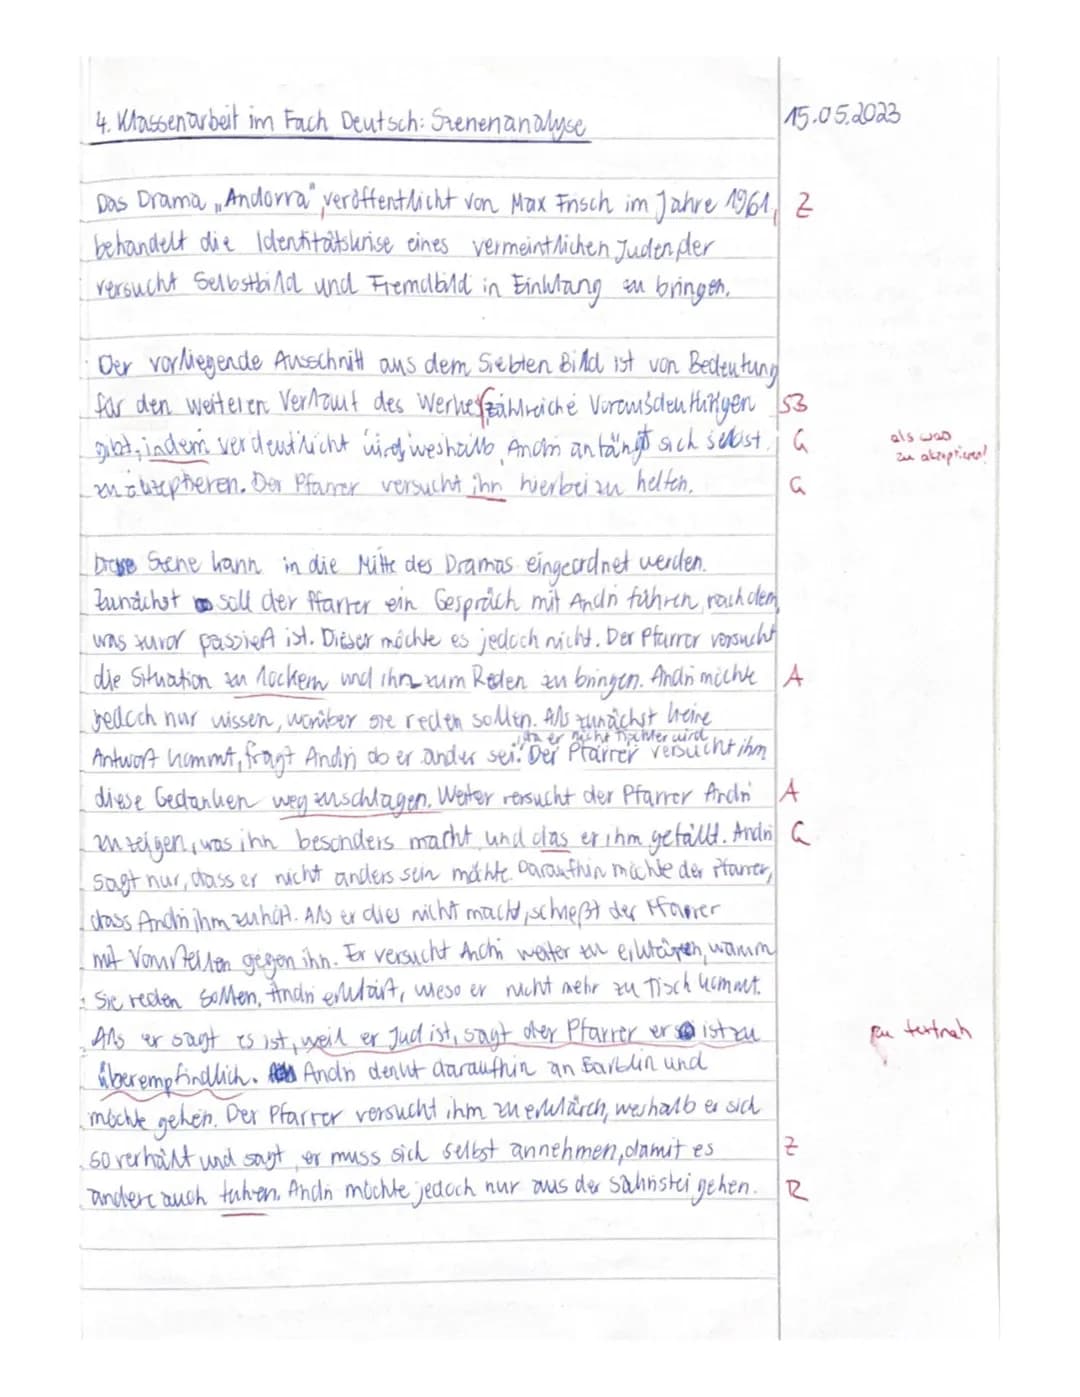 4. Klassenarbeit im Fach Deutsch: Szenenanalyse 15.05.2023
Das Drama „Andorra“, veröffentlicht von Max Frisch im Jahre 1961, Z
behandelt die Identitätskrise eines vermeintlichen Juden, der
versucht Selbstbild und Fremdbild in Einklang zu bringen.
Der vorliegende Ausschnitt aus dem Siebten Bild ist von Bedeutung
für den weiteren Verlauf des Werkes zahlreiche Vorausdeutungen SB
gibt, indem verdeutlicht wird, weshalb Andri anfängt sich selbst G als was
zu akzeptieren. Der Pfarrer versucht ihn hierbei zu helfen. G zu akzeptieren!
Diese Szene kann in die Mitte des Dramas eingeordnet werden.
Zunächst soll der Pfarrer ein Gespräch mit Andri führen, nachdem
was zuvor passiert ist. Dieser möchte es jedoch nicht. Der Pfarrer versucht
die Situation zu lockern und ihn zum Reden zu bringen. Andri möchte A
jedoch nur wissen, worüber sie reden sollen. Als zunächst keine
Antwort kommt, fragt Andri, ob er ander sei, da er nicht Tischler wird. Der Pfarrer versucht ihm
diese Gedanken weg zuschlagen. Weiter versucht der Pfarrer Andri A
zu zeigen, was ihn besonders macht und das er ihm gefällt. Andri G
sagt nur, dass er nicht anders sein möchte. Daraufhin möchte der Pfarrer,
dass Andri ihm zuhört. Als er dies nicht macht, schießt der Pfarrer
mit Vorurteilen gegen ihn. Er versucht Andri weiter zu erklären, warum
Sie reden sollen. Andri erklärt, wieso er nicht mehr zu Tisch kommt.
Als er sagt es ist, weil er Jud ist, sagt der Pfarrer er ist zu zu textnah
überempfindlich. Andri denkt daraufhin an Barblin und
möchte gehen. Der Pfarrer versucht ihm zu erklären, weshalb er sich
so verhält und sagt, er muss sich selbst annehmen, damit es Z
andere auch tuhen. Andri möchte jedoch nur aus der Sahristei gehen. R